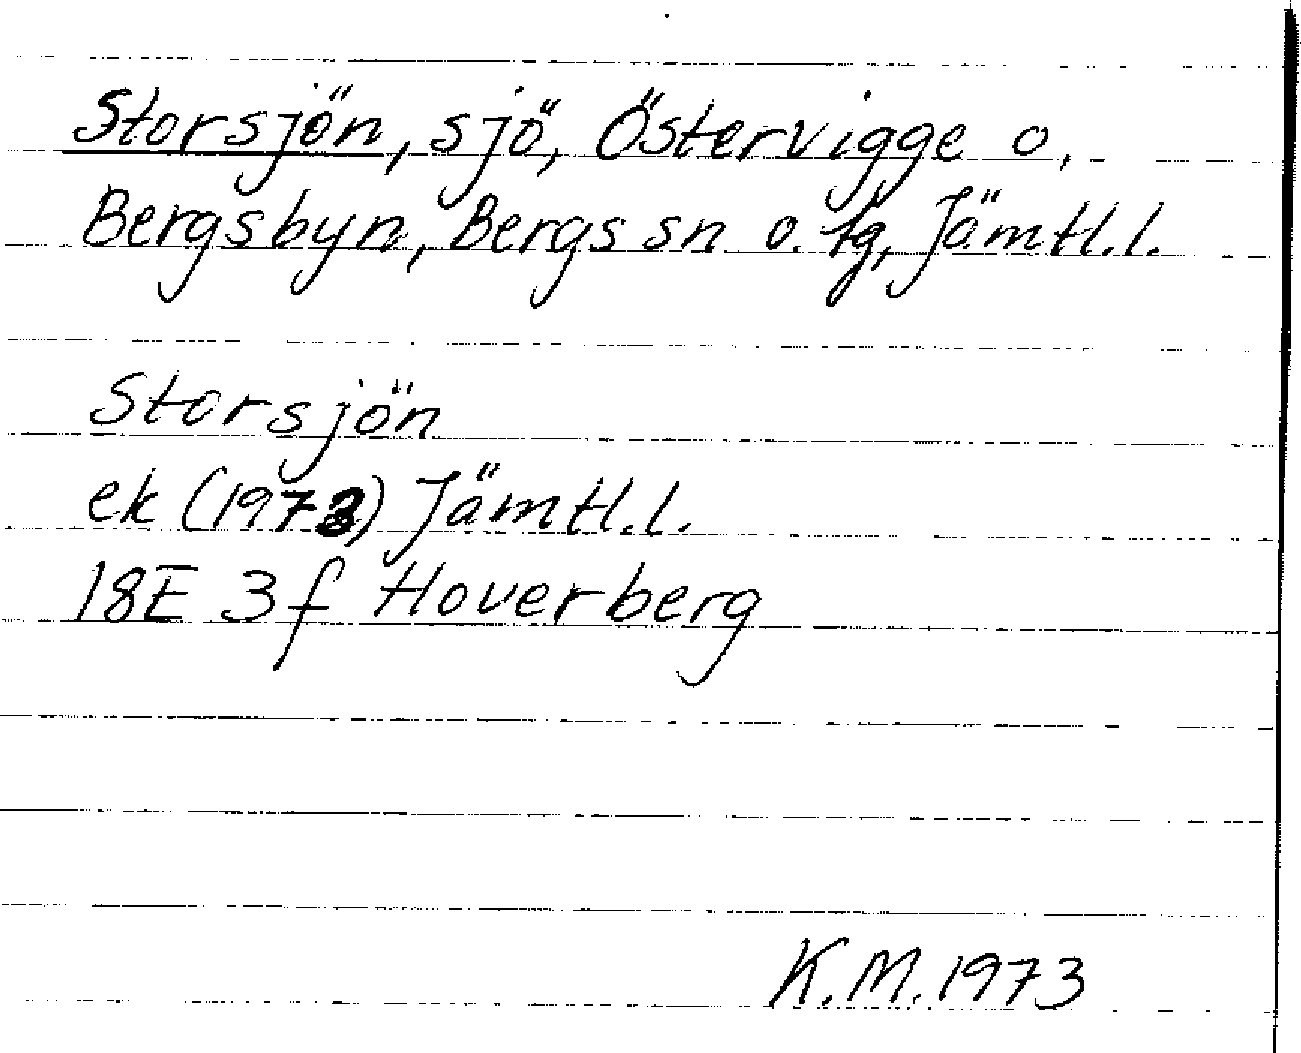 Storsjön, sjö, Östervigge o.
Bergsbyn, Bergs sn o. tg, Jämtl.l.
Storsjön
ek (1973) Jämtl.l.
18E 3f Hoverberg
K.M. 1973